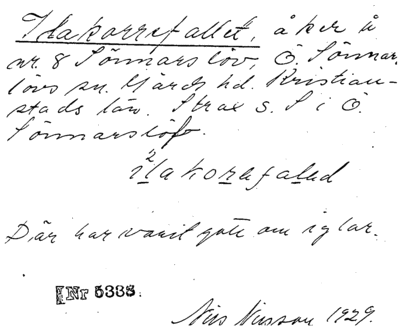 Ilakorrefallet, åker å
nr. 8 Sönnarslöv, Ö. Sönnars
lövs sn. Gärds hd. Kristian-
stads län. Strax s. S i Ö.
Sönnarslöf.
ilakorefaled
Där har varit gått om iglar.
Nr 5338.
Nils Nilsson 1929.